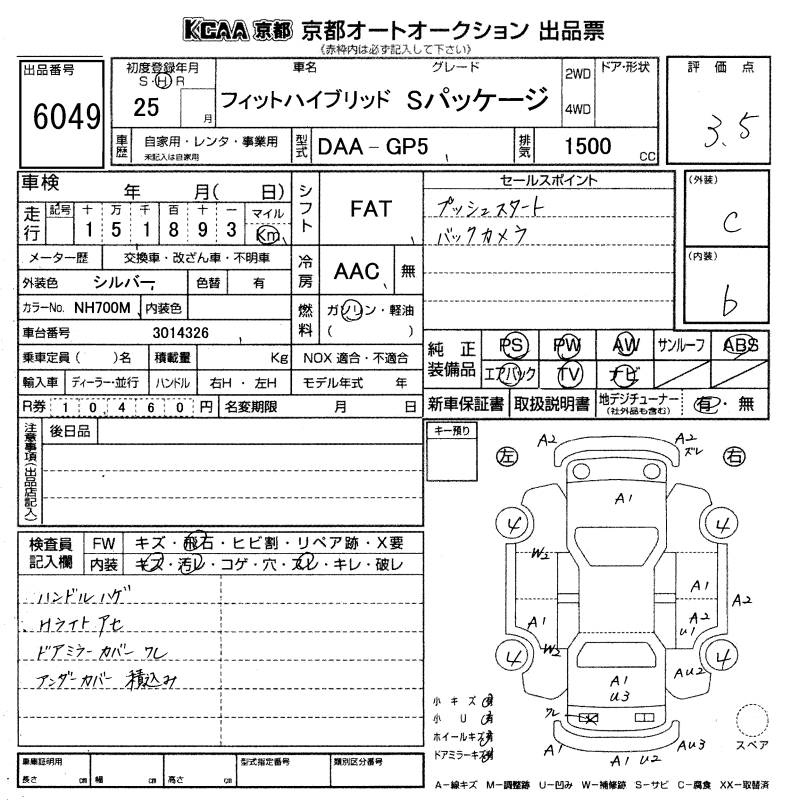 KCAA 京都 京都オートオークション 出品票
《赤枠内は必ず記入して下さい》
出品番号
6049
初度登録年月
S・H R
25 月
車名 グレード
フィットハイブリッド Sパッケージ
2WD
4WD
ドア・形状
評価点
3.5
車歴
自家用・レンタ・事業用
未記入は自家用
型式
DAA-GP5
排気
1500 CC
車検 年 月( 日)
走行
記号 十 万 千 百 十 一
1 5 1 8 9 3
マイル
Km
シフト
FAT
セールスポイント
プッシュスタート
バックカメラ
(外装)
C
(内装)
b
メーター歴 交換車・改ざん車・不明車
外装色 シルバー 色替 有
冷房
AAC 無
カラーNo. NH700M 内装色
燃料
ガソリン・軽油
( )
車台番号 3014326
乗車定員( )名 積載量 Kg NOX 適合・不適合
輸入車 ディーラー・並行 ハンドル 右H・左H モデル年式 年
R券 10,460円 名変期限 月 日
純正装備品
PS PW AW サンルーフ ABS
エアバック TV ナビ
新車保証書 取扱説明書 地デジチューナー
(社外品も含む)
有・無
注意事項(出品店記入)
後日品
キー預り
左
右
検査員記入欄
FW キズ・飛石・ヒビ割・リペア跡・X要
内装 キズ・汚レ・コゲ・穴・スレ・キレ・破レ
ハンドル ハゲ
Hライト アセ
ドアミラー カバー ワレ
アンダーカバー 積込み
A2
A2
ズレ
A1
4
4
W2
A1
A2
A1
A2
U1
W2
4
4
A1
U3
AU2
ワレ
A1
A1 U2
AU3
小キズ 有
小 U 有
ホイールキズ 有
ドアミラーキズ 有
スペア
車庫証明用
長さ cm 幅 cm 高さ cm
型式指定番号
類別区分番号
A−線キズ M−調整跡 U−凹み W−補修跡 S−サビ C−腐食 XX−取替済